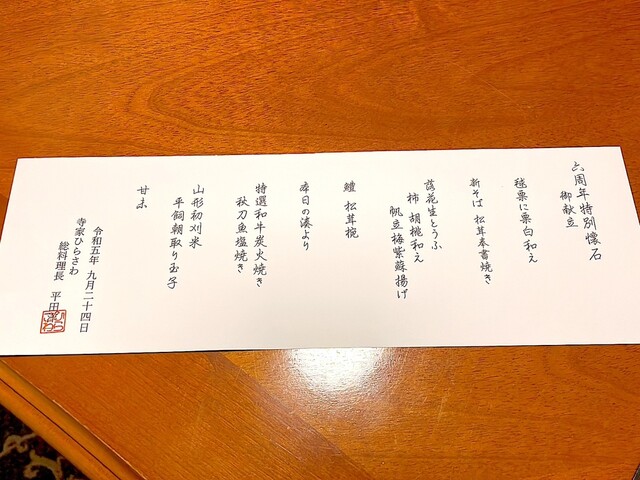 六周年特別懐石
御献立
毬栗に栗白和え
新そば 松茸奉書焼き
落花生とうふ
柿 胡桃和え
帆立梅紫蘇揚げ
鱧 松茸椀
本日の湊より
特選和牛炭火焼き
秋刀魚塩焼き
山形初刈米
平飼朝取り玉子
甘未
令和五年 九月二十四日
寺家ひらさわ
総料理長 平田